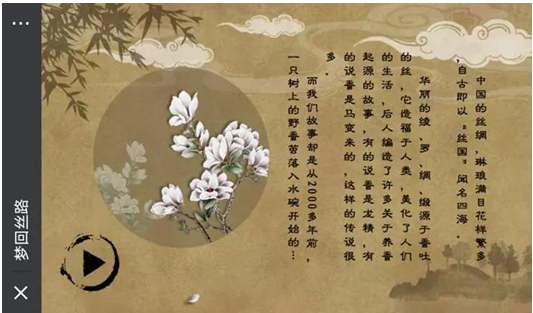 中国的丝绸,琳琅满目花样繁多
,自古即以“丝国”闻名四海。
华丽的绫、罗、绸、缎源于蚕吐
的丝,它造福于人类,美化了人们
的生活,后人编造了许多关于养蚕
起源的故事,有的说蚕是龙精,有
的说蚕是马变来的,这样的传说很
多。
而我们故事却是从2000多年前,
一只树上的野蚕茧落入水碗开始的…
梦回丝路